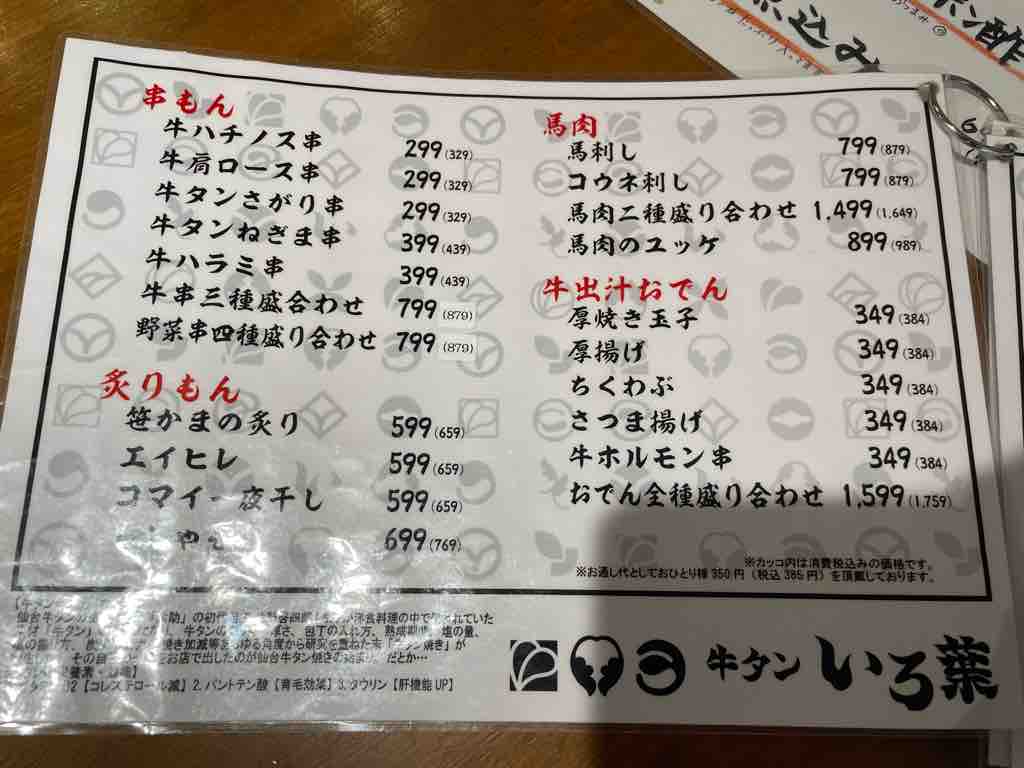 串もん
牛ハチノス串 299(329)
牛肩ロース串 299(329)
牛タンさがり串 299(329)
牛タンねぎま串 399(439)
牛ハラミ串 399(439)
牛串三種盛合わせ 799(879)
野菜串四種盛り合わせ 799(879)
炙りもん
笹かまの炙り 599(659)
エイヒレ 599(659)
コマイ一夜干し 599(659)
699(769)
馬肉
馬刺し 799(879)
コウネ刺し 799(879)
馬肉二種盛り合わせ 1,499(1,649)
馬肉のユッケ 899(989)
牛出汁おでん
厚焼き玉子 349(384)
厚揚げ 349(384)
ちくわぶ 349(384)
さつま揚げ 349(384)
牛ホルモン串 349(384)
おでん全種盛り合わせ 1,599(1,759)
※カッコ内は消費税込みの価格です。
※お通し代としておひとり様350円（税込385円）を頂戴しております。
仙台牛タンの
の初代
洋食料理の中で
ていた
「牛タン」
牛タンの
さ、包丁の入れ方、熟成
塩の量、
焼き加減等
ゆる角度から研究を重ねた末
タン焼き」が
その
お店で出したのが仙台牛タン焼きの始まり
だとか…
【コレステロール減】2.パントテン酸【育毛効果】3.タウリン【肝機能UP】
牛タン いろ葉
ポン酢
込み
6